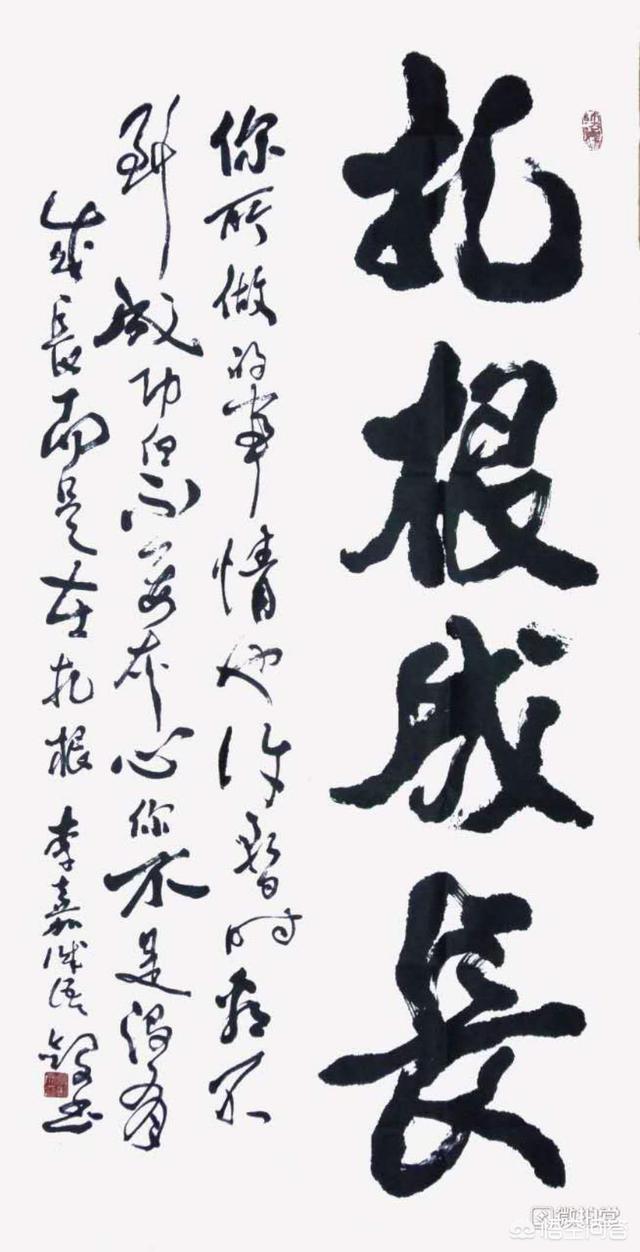 扎根成長
你所做的事情也许暂时看不
到成功但不要灰心你不是没有
成長而是在扎根 李嘉诚语 书
微拍堂
悟空问答